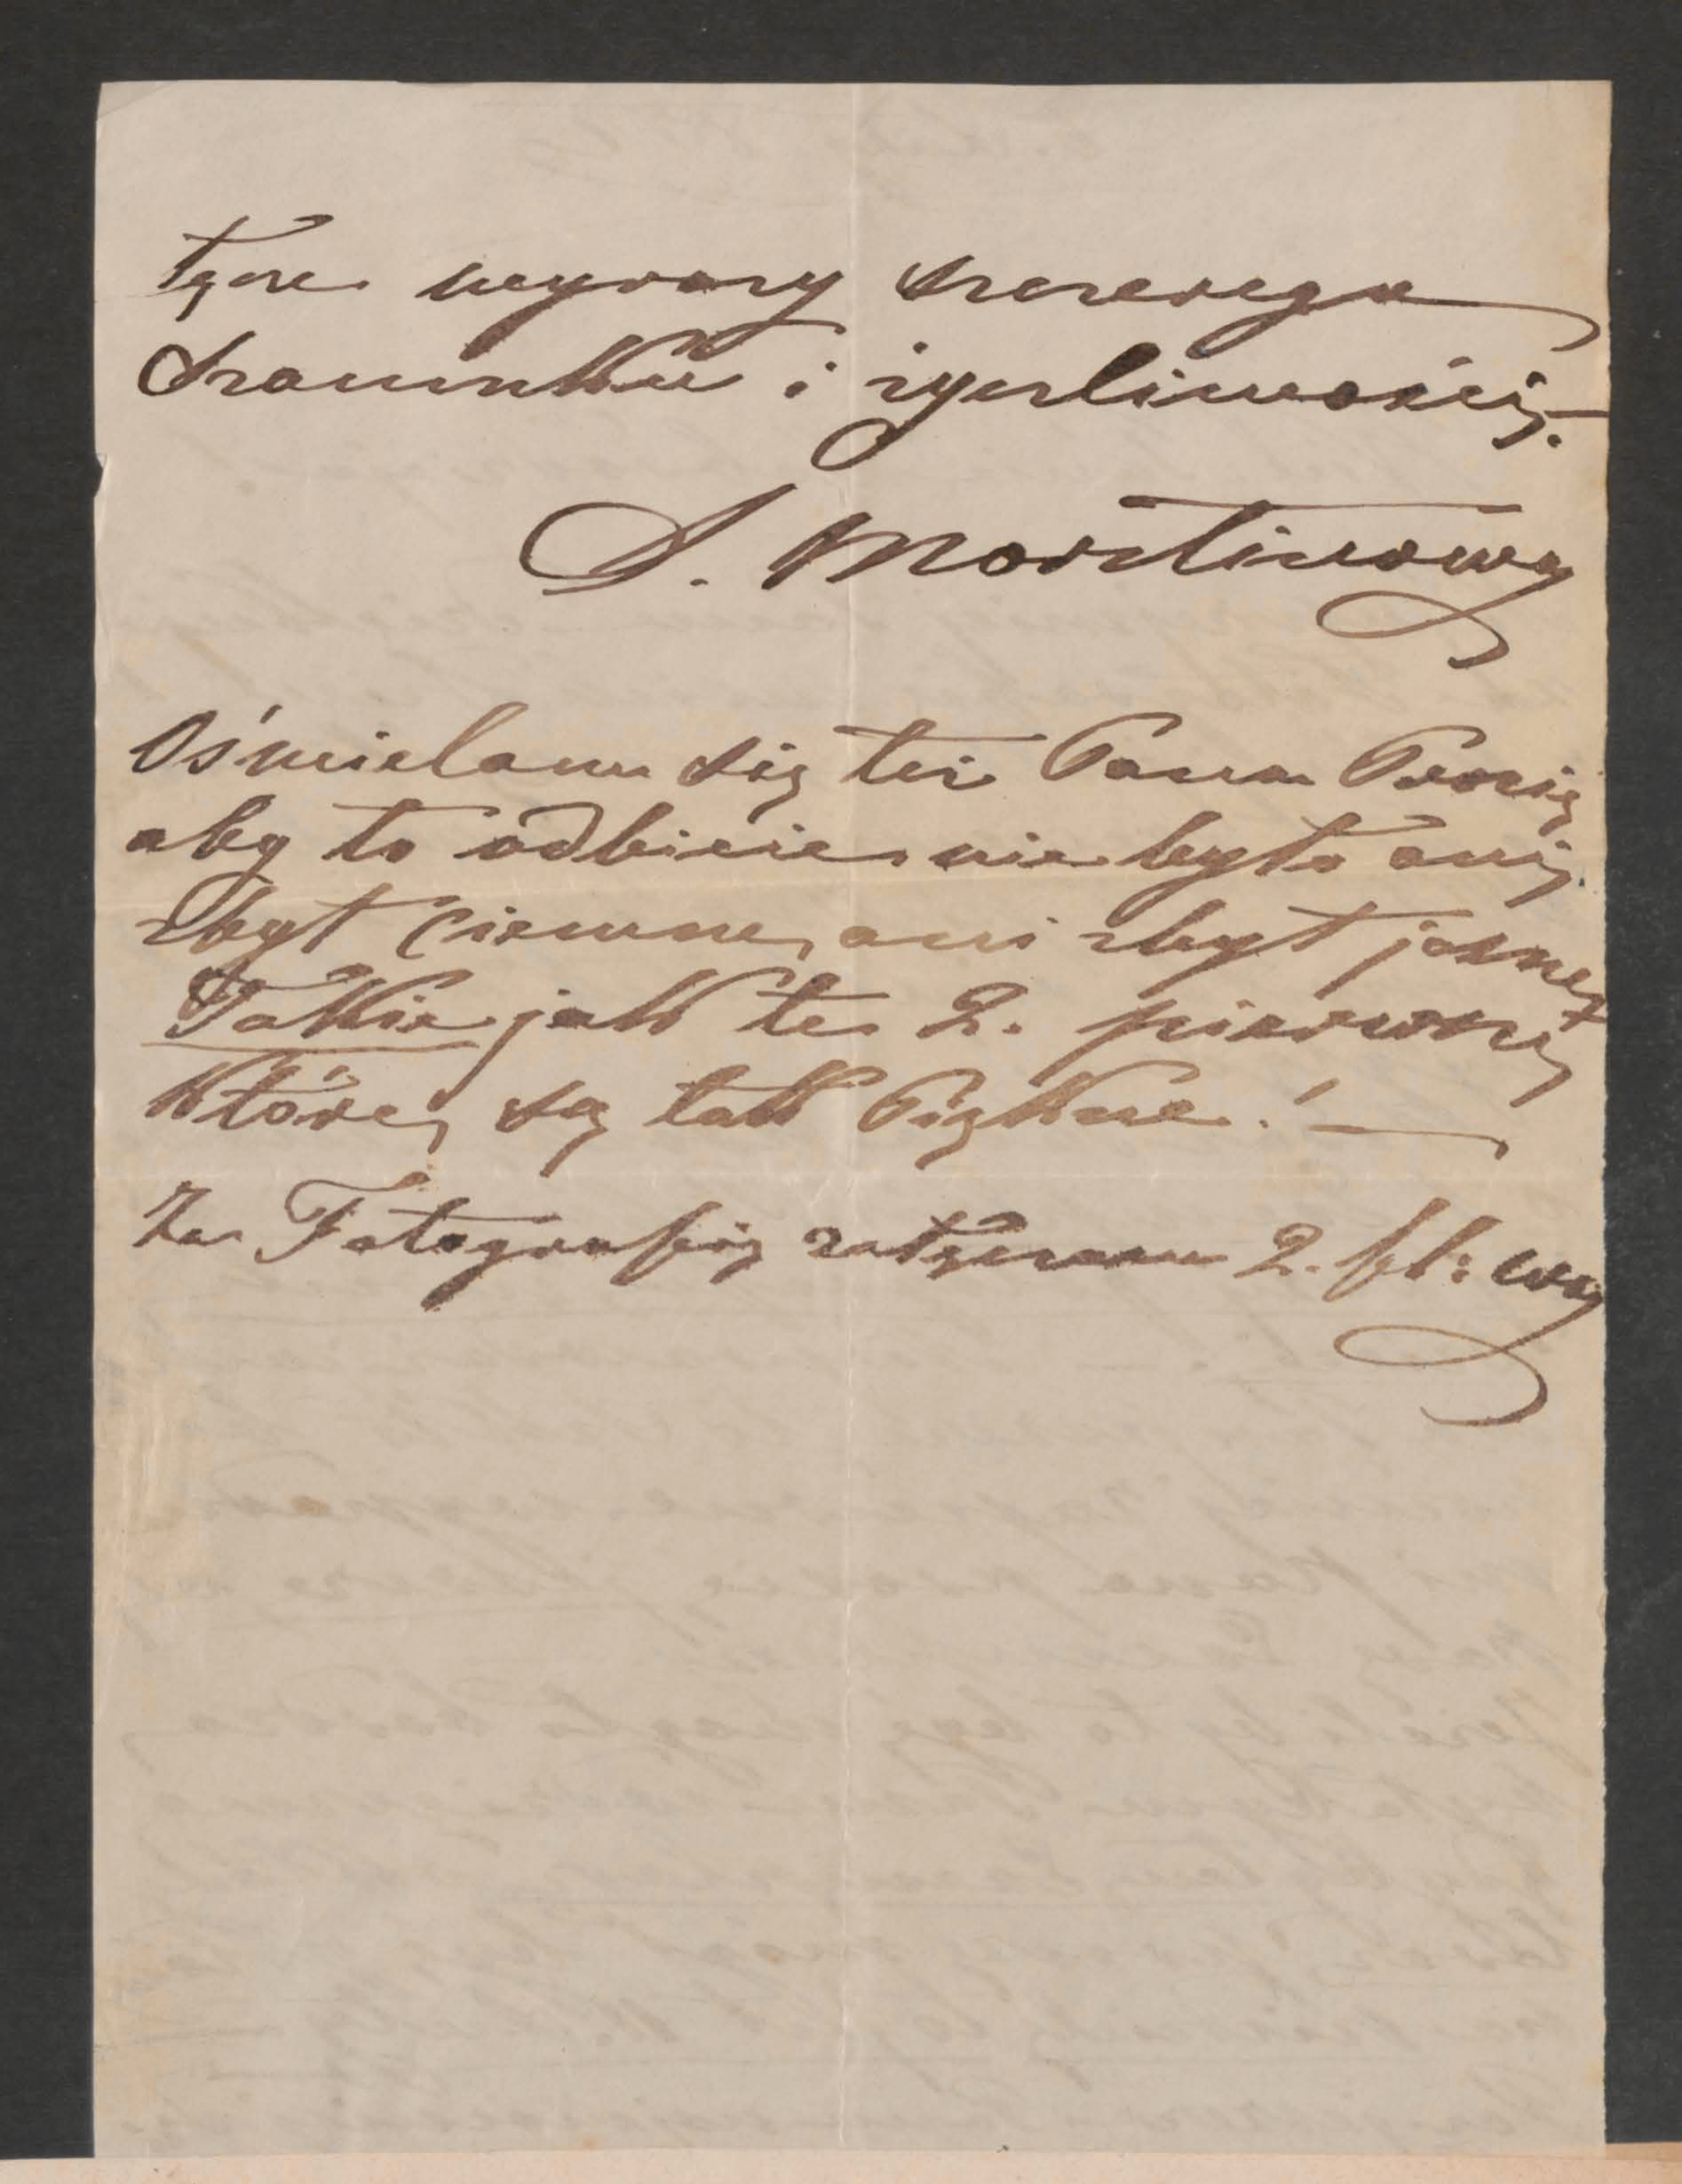 łączę wyrazy szczerego
szacunku i życzliwości,
S. Martinowa
Ośmielam się też Pana Prosić
aby to odbicie nie było ani
zbyt Ciemne, ani zbyt jasne,
Takie jak te 2. pierwsze,
które, są tak Piękne! —
Za Fotografię załączam 2. fl: wa